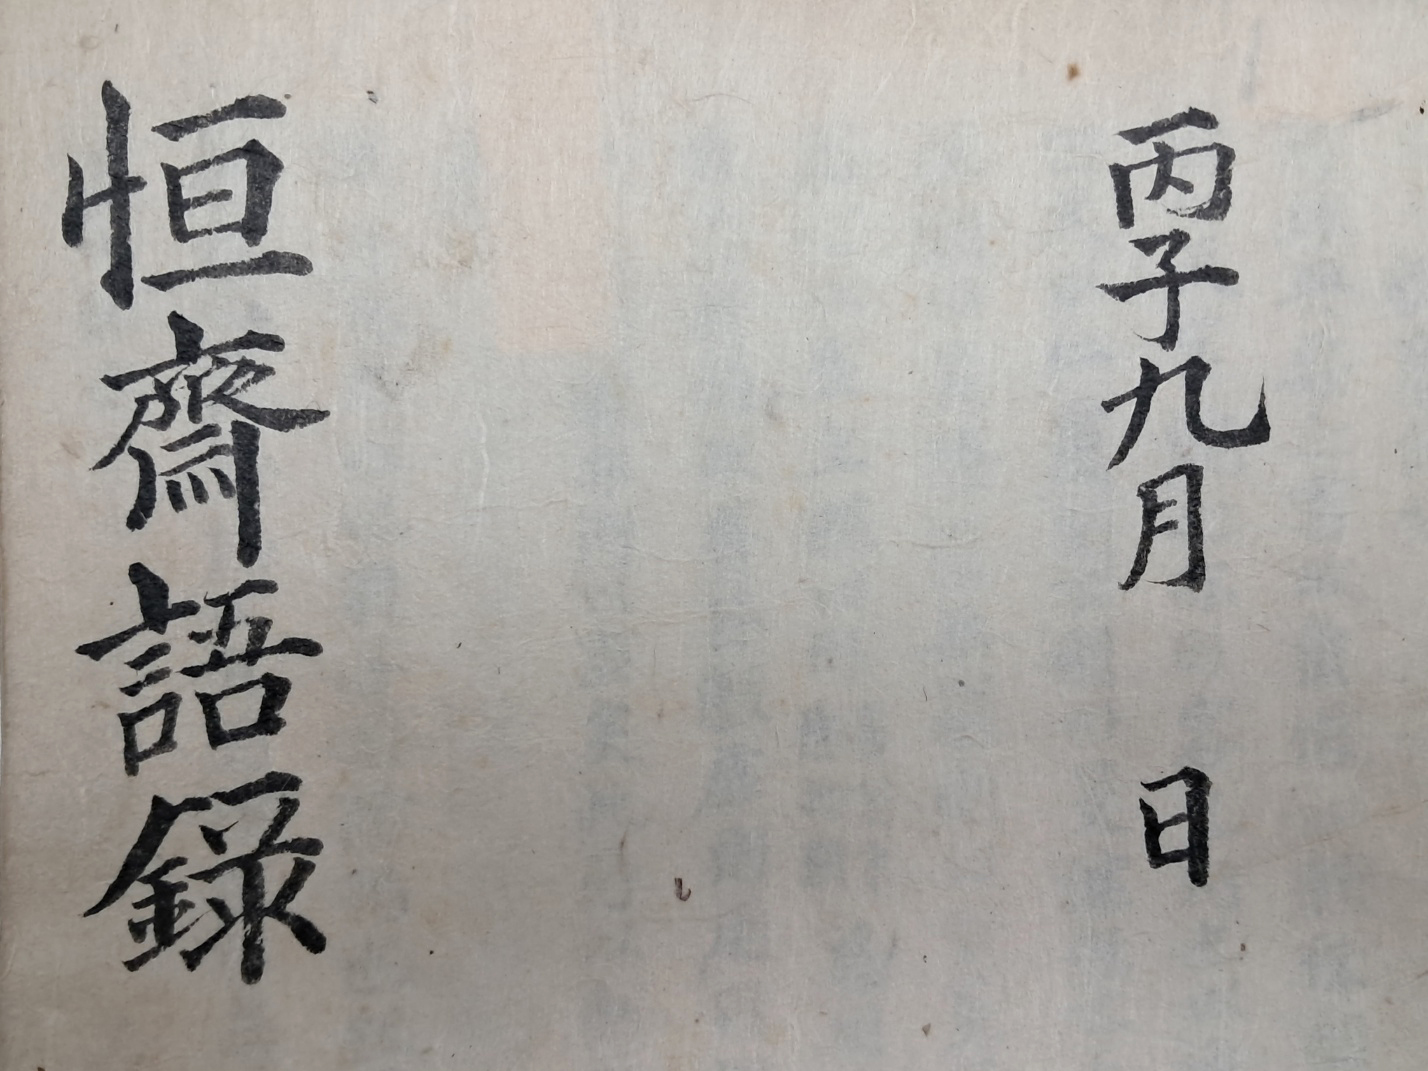 丙子九月 日
恒齋語錄